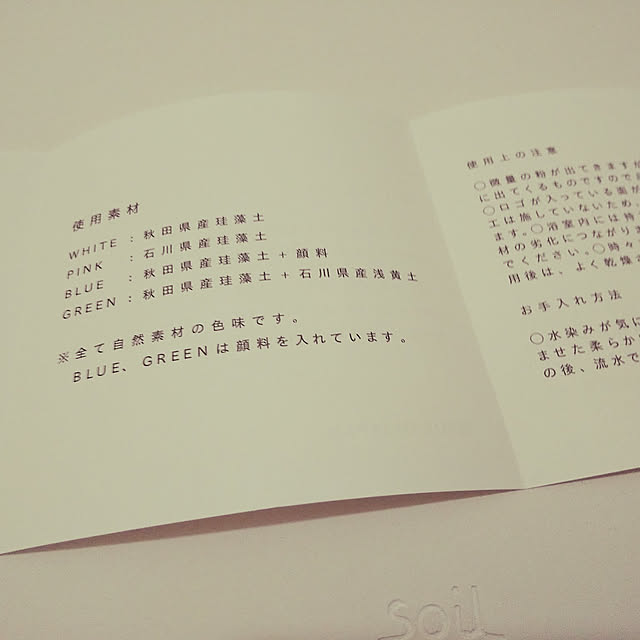 使用素材
WHITE : 秋田県産珪藻土
PINK : 石川県産珪藻土
BLUE : 秋田県産珪藻土 + 顔料
GREEN : 秋田県産珪藻土 + 石川県産浅黄土
※全て自然素材の色味です。
BLUE、GREENは顔料を入れています。
使用上の注意
○微量の粉が出てきますが
に出てくるものですので
○ロゴが入っている面が
工は施していないため、
ます。○浴室内には持
材の劣化につながりま
でください。○時々
用後は、よく乾燥さ
お手入れ方法
○水染みが気に
ませた柔らか
の後、流水で
soil